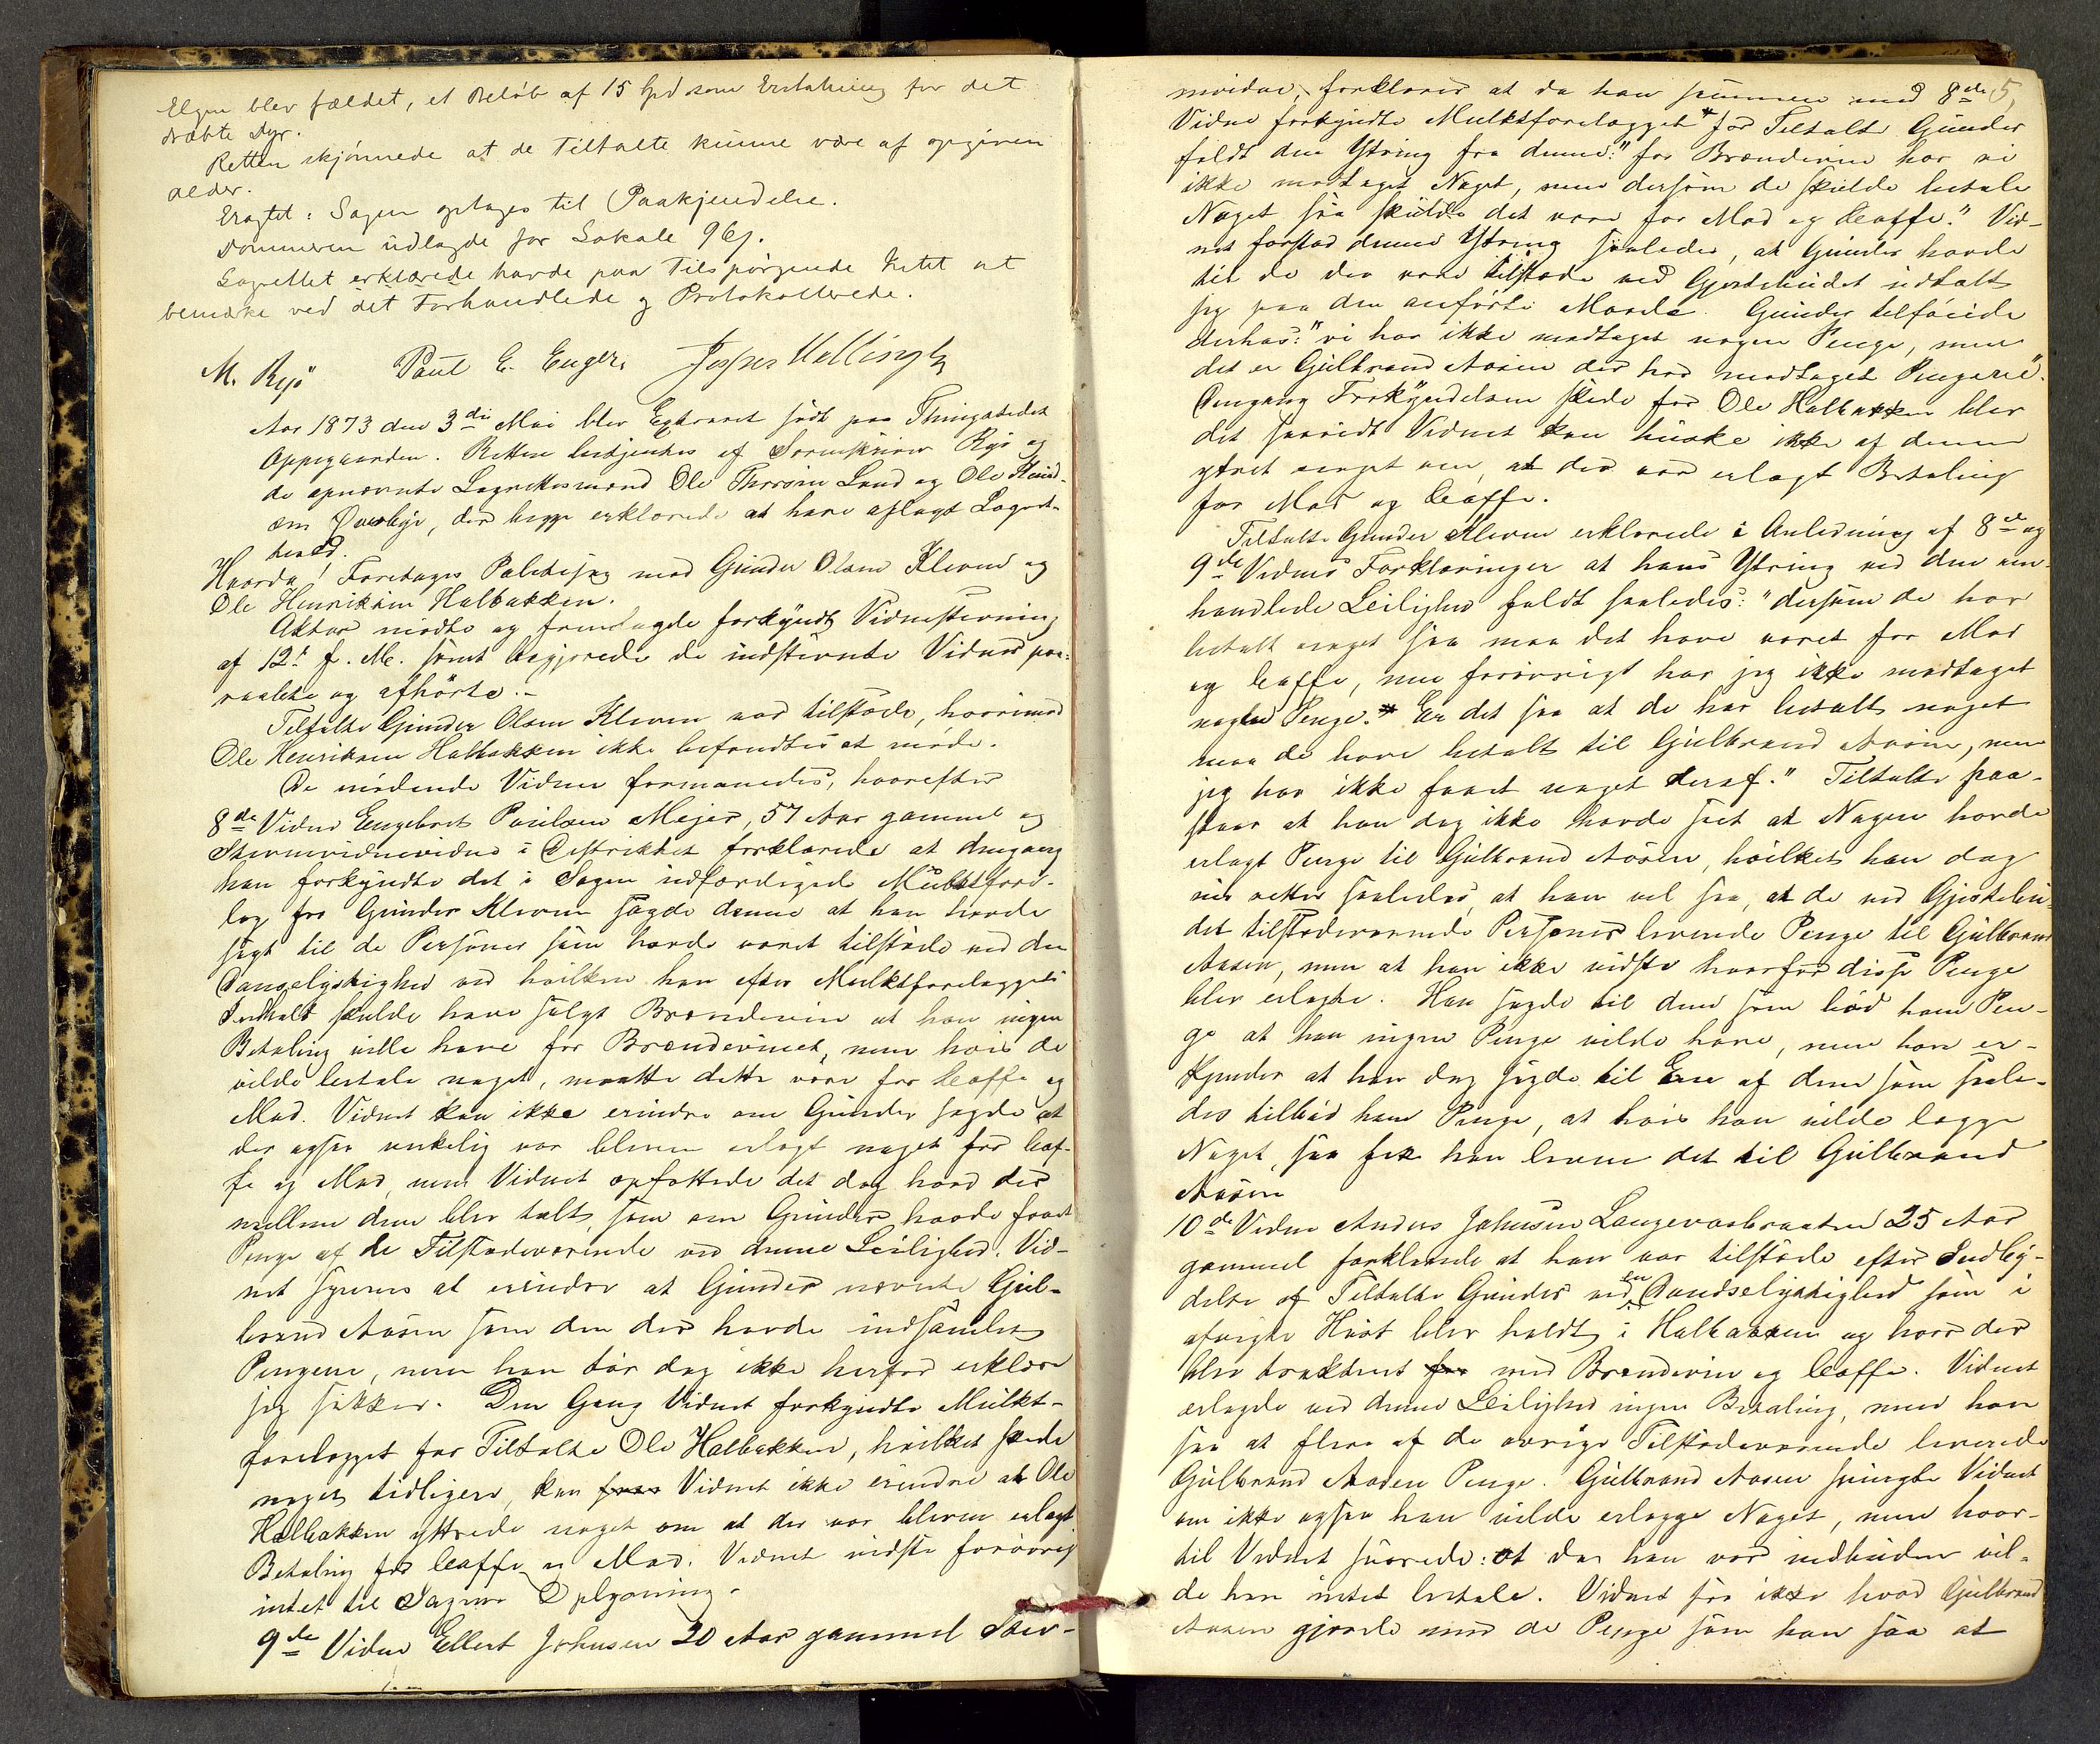 Elgen blev fældet, et Beløb af 15 Spd som Erstatning for det
dræbte Dyr.
Retten skjønnede at de Tiltalte kunne være af opgiven
Alder.
Eragtet: Sagen optages til Paakjendelse.
Dommeren udlagde for Lokale 96 s.
Lagrettet erklærede havde paa Tilspørgende Intet at
bemærke ved det Forhandlede og Protokollerede.
M. Ryø Paul E. Enger. Jesper
Aar 1873 den 3die Mai blev Extraret sadt paa Thingstedet
Oppegaarden. Retten betjentes af Sorenskriver Ryø og
de opnævnte Lagrettesmænd Ole Thorsen Lund og Ole
Øverbye, der begge erklærede at have aflagt Lagret-
teseed.
Hvorda! Foretoges Politisag mod Gunder Olsen Kleven og
Ole Henriksen Halbakken.
Aktor mødte og fremlagde forkyndt Vidnestevning
af 12t f. M. samt begjærede de indstevnte Vidner paa-
raabte og afhørte.-
Tiltalte Gunder Olsen Kleven var tilstede, hvorimod
Ole Henriksen Halbakken ikke befandtes at møde.
De mødende Vidner formanedes, hvorefter
8de Vidne Engebret Paulsen Mejer, 57 Aar gammel og
Stevnevidne i Distriktet forklarede at dengang
han forkyndte det i Sagen udfærdigede Mulktfore-
læg for Gunder Kleven sagde denne at han havde
sagt til de Personer som havde været tilstede ved den
Dandselystighed ved hvilken han efter Mulktforelæggets
Indhold skulde have solgt Brændeviin at han ingen
Betaling ville have for Brændevinet, men hvis de
vilde betale noget, maatte dette være for Caffe og
Mad. Vidnet kan ikke erindre om Gunder sagde at
der ogsaa virkelig var bleven erlagt noget for Caf-
fe og Mad, men Vidnet opfattede det dog hvad der
mellem dem blev talt, som om Gunder havde faaet
Penge af de Tilstedeværende ved denne Leilighed. Vid-
net synes at erindre at Gunder nævnte Gul-
brand Aasen som den der havde indsamlet
Pengene, men han tør dog ikke herfor erklære
sig sikker. Den Gang Vidnet forkyndte Mulkt-
forelægget for Tiltalte Ole Halbakken, hvilket skede
noget tidligere, kan Vidnet ikke erindre at Ole
Halbakken yttrede noget om at der var bleven erlagt
Betaling for Caffe og Mad. Vidnet vidste forøvrig
intet til Sagens Oplysning.
9de Vidne Ellert Johnsen 20 Aar gammel Stev-
5,
nevidne, forklarer at da han sammen med 8de
Vidne forkyndte Mulktsforelægget for Tiltalte Gunder
faldt den Ytring fra denne: "for Brændeviin har vi
ikke modtaget Noget, men dersom de skulde betale
Noget saa skulde det være for Mad og Caffe." Vid-
net forstod denne Ytring saaledes, at Gunder havde
til de der vare tilstede ved Gjestebudet udtalt
sig paa den anførte Maade. Gunder tilføiede
derhos: "vi har ikke modtaget nogen Penge, men
det er Gulbrand Aasen der har modtaget Pengene".
Dengang Forkyndelsen skede for Ole Halbakken blev
det saavidt Vidnet kan huske ikke af denne
ytret noget om, at der var erlagt Betaling
for Mad og Caffe.
Tiltalte Gunder Kleven erklærede i Anledning af 8de og
9de Vidnes Forklaringer at hans Ytring ved den om-
handlede Leilighed faldt saaledes: "dersom de har
betalt noget saa maa det have været for Mad
og Caffe, men forøvrigt har jeg ikke modtaget
nogen Penge. Er det saa at de har betalt noget
maa de have betalt til Gulbrand Aasen, men
jeg har ikke faaet noget deraf." Tiltalte paa-
staar at han dog ikke havde seet at Nogen havde
erlagt Penge til Gulbrand Aasen, hvilket han dog
nu retter saaledes, at han vel saa, at de ved Gjestebu-
det tilstedeværende Personer leverede Penge til Gulbrand
Aasen, men at han ikke vidste hvorfor disse Penge
blev erlagte. Han sagde til dem som bød ham Pen-
ge at han ingen Penge vilde have, men han er-
kjender at han dog sagde til Een af dem som saale-
des tilbød ham Penge, at hvis han vilde lægge
Noget, saa fik han levere det til Gulbrand
Aasen
10de Vidne Anders Johnsen Langevasbraaten 25 Aar
gammel forklarede at han var tilstede efter Indby-
delse af Tiltalte Gunder ved en Dandselystighed som i
afvigte Høst blev holdt i Halbakken og hvor der
blev trakteret for med Brændeviin og Caffe. Vidnet
erlagde ved denne Leilighed ingen Betaling, men han
saa at flere af de øvrige Tilstedeværende leverede
Gulbrand Aasen Penge. Gulbrand Aasen spurgte Vidnet
om ikke ogsaa han vilde erlægge Noget, men hvor-
til Vidnet svarede: at da han var indbuden vil-
de han intet betale. Vidnet saa ikke hvad Gulbrand
Aasen gjorde med de Penge som han saa at